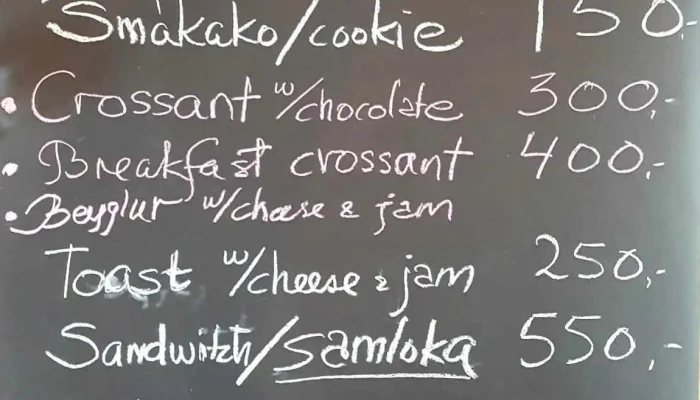 Smákako/cookie 150.-
• Crossant w/chocolate 300,-
• Breakfast crossant 400,-
• Beyglur w/chease & jam
Toast w/cheese & jam 250,-
Sandwitch/samloka 550,-